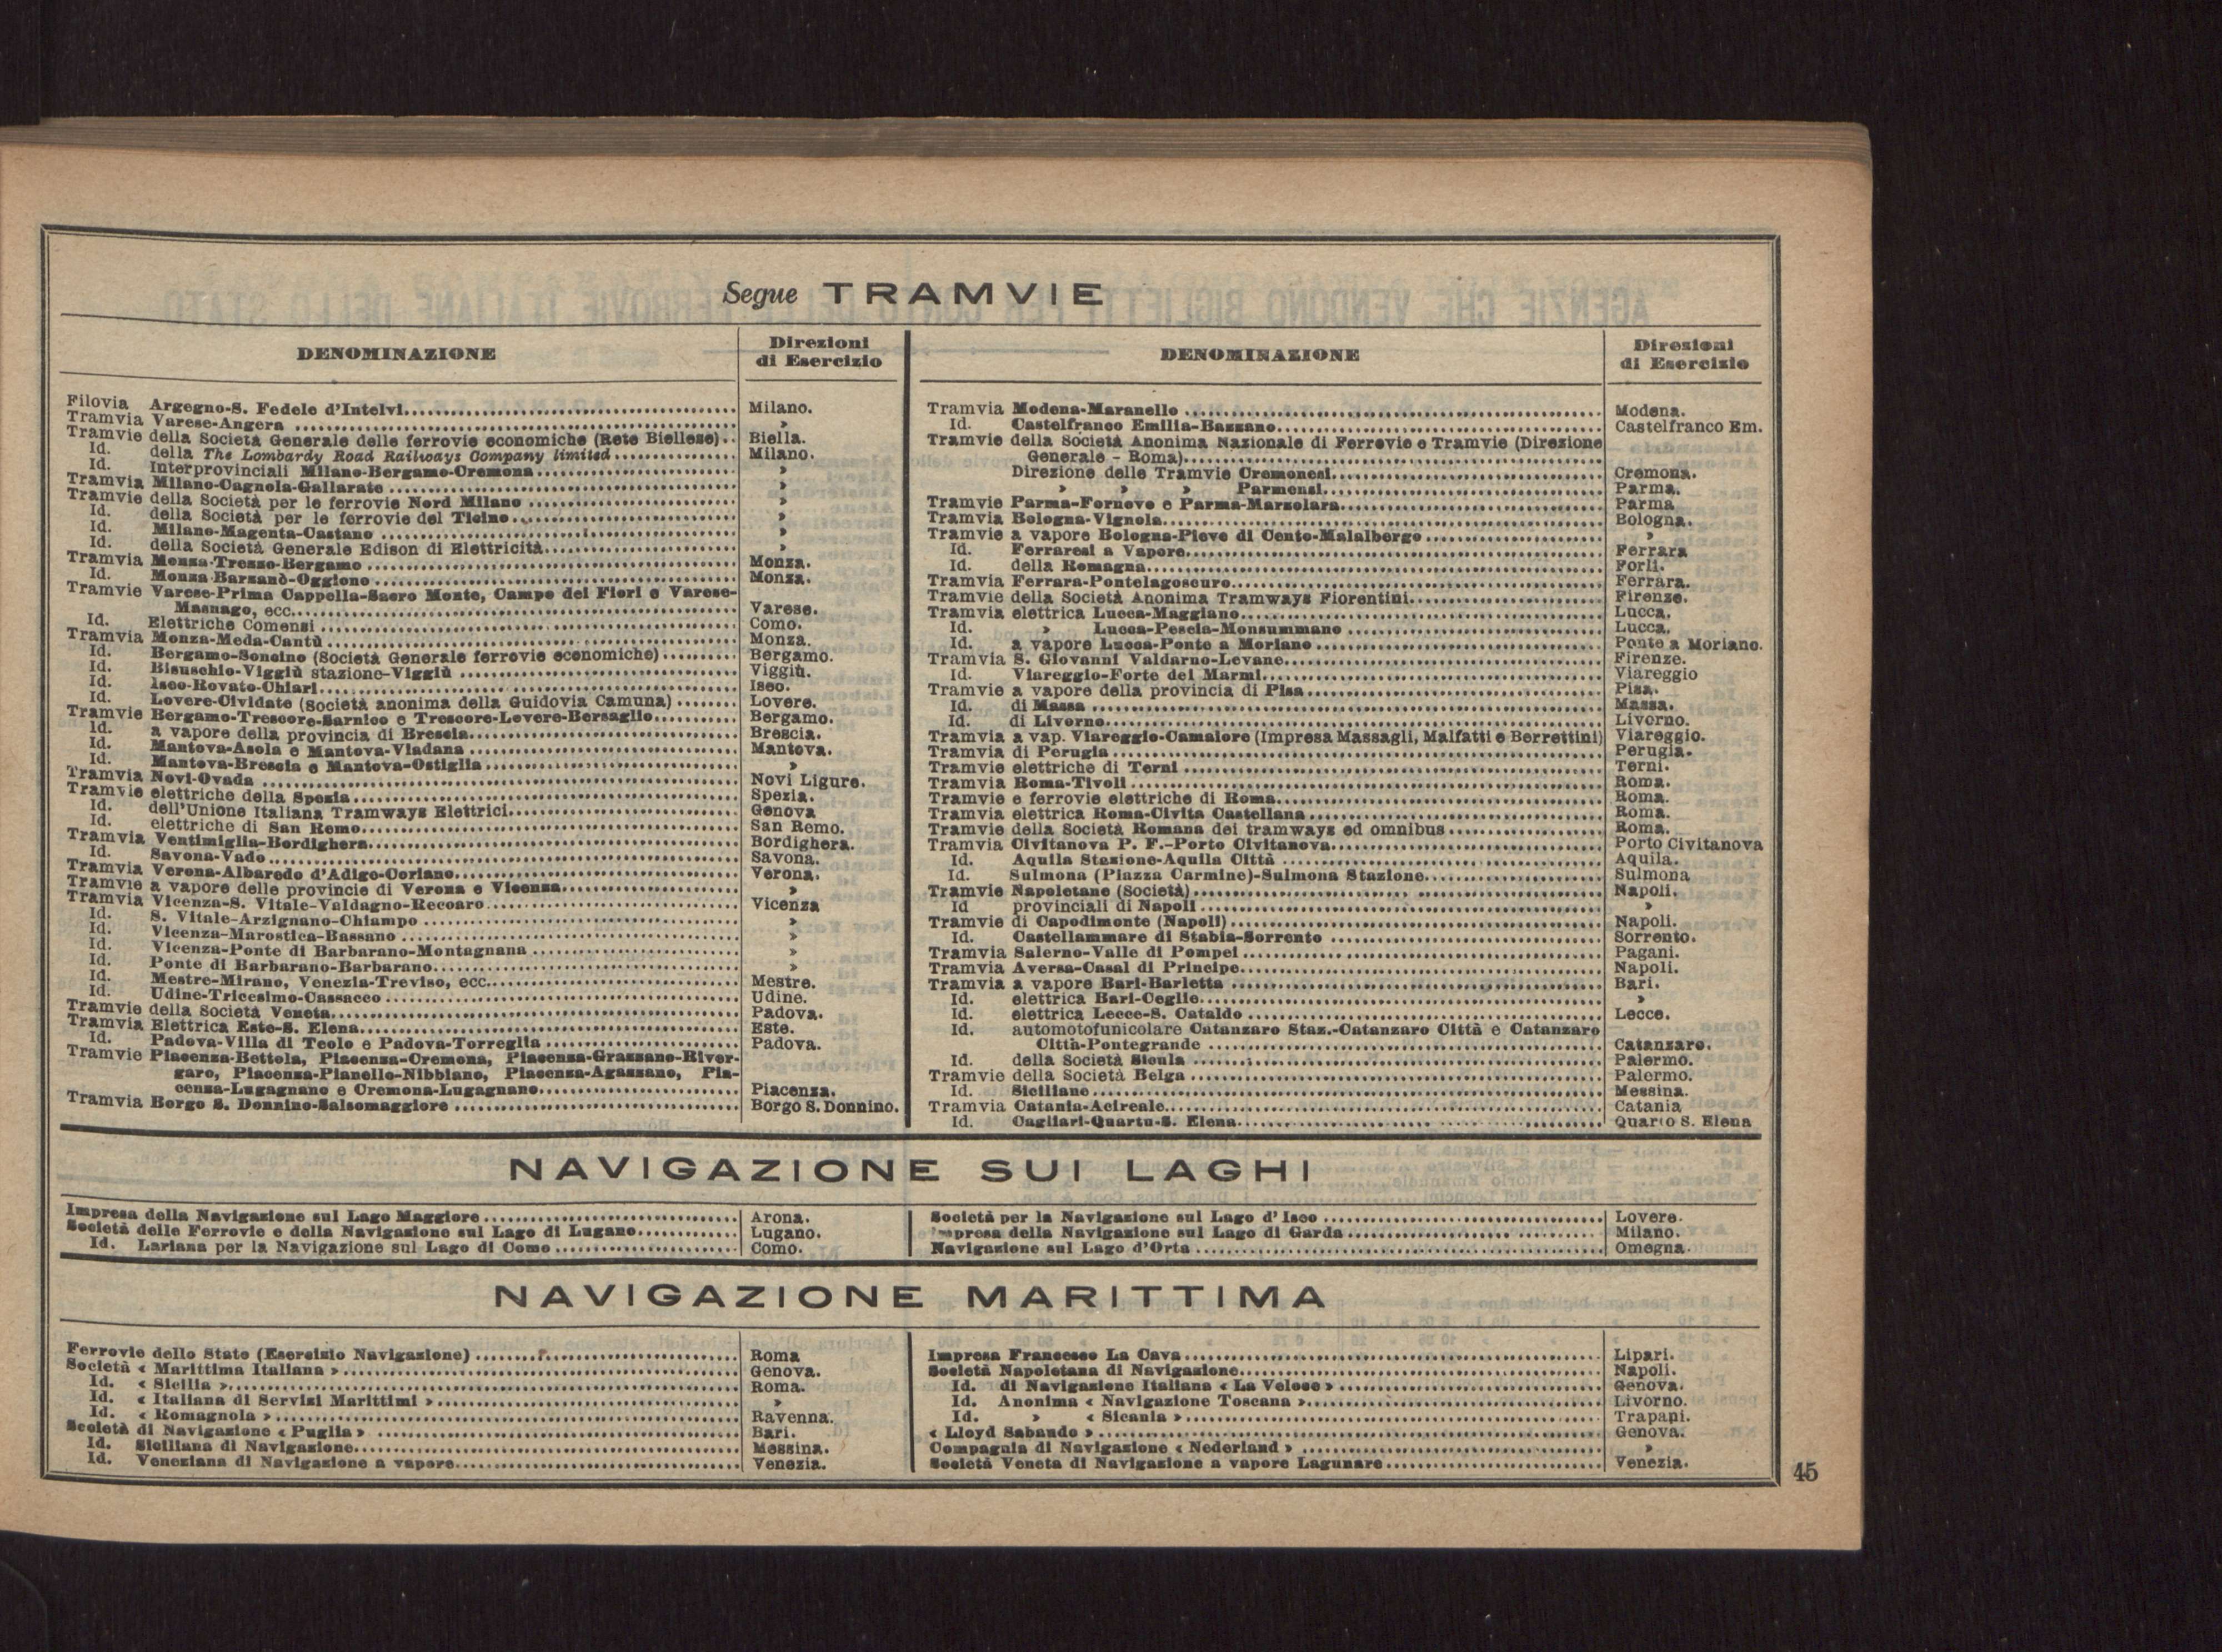 Segue TRAMVIE
DENOMINAZIONE
Direzioni
di Esercizio
Filovia Argegno-S. Fedele d'Intelvi Milano.
Tramvia Varese-Angera »
Tramvie della Società Generale delle ferrovie economiche (Rete Biellese) Biella.
Id. della The Lombardy Road Railways Company limited Milano.
Id. Interprovinciali Milano-Bergamo-Cremona »
Tramvia Milano-Cagnola-Gallarate »
Tramvie della Società per le ferrovie Nord Milano »
Id. della Società per le ferrovie del Ticino »
Id. Milano-Magenta-Castano »
Id. della Società Generale Edison di Elettricità »
Tramvia Monza-Trezzo-Bergamo Monza.
Id. Monza-Barzanò-Oggiono Monza.
Tramvie Varese-Prima Cappella-Sacro Monte, Campo dei Fiori e Varese-
Masnago, ecc. Varese.
Id. Elettriche Comensi Como.
Tramvia Monza-Meda-Cantù Monza.
Id. Bergamo-Soncino (Società Generale ferrovie economiche) Bergamo.
Id. Bisuschio-Viggiù stazione-Viggiù Viggiù.
Id. Iseo-Rovato-Chiari Iseo.
Id. Lovere-Cividate (Società anonima della Guidovia Camuna) Lovere.
Tramvie Bergamo-Trescore-Sarnico e Trescore-Lovere-Bersaglio Bergamo.
Id. a vapore della provincia di Brescia Brescia.
Id. Mantova-Asola e Mantova-Viadana Mantova.
Id. Mantova-Brescia e Mantova-Ostiglia »
Tramvia Novi-Ovada Novi Ligure.
Tramvie elettriche della Spezia Spezia.
Id. dell'Unione Italiana Tramways Elettrici Genova
Id. elettriche di San Remo San Remo.
Tramvia Ventimiglia-Bordighera Bordighera.
Id. Savona-Vado Savona.
Tramvia Verona-Albaredo d'Adige-Coriano Verona.
Tramvie a vapore delle provincie di Verona e Vicenza »
Tramvia Vicenza-S. Vitale-Valdagno-Recoaro Vicenza
Id. S. Vitale-Arzignano-Chiampo »
Id. Vicenza-Marostica-Bassano »
Id. Vicenza-Ponte di Barbarano-Montagnana »
Id. Ponte di Barbarano-Barbarano »
Id. Mestre-Mirano, Venezia-Treviso, ecc. Mestre.
Id. Udine-Tricesimo-Cassacco Udine.
Tramvie della Società Veneta Padova.
Tramvia Elettrica Este-S. Elena Este.
Id. Padova-Villa di Teolo e Padova-Torreglia Padova.
Tramvie Piacenza-Bettola, Piacenza-Cremona, Piacenza-Grazzano-River-
garo, Piacenza-Pianello-Nibbiano, Piacenza-Agazzano, Pia-
cenza-Lugagnano e Cremona-Lugagnano Piacenza.
Tramvia Borgo S. Donnino-Salsomaggiore Borgo S. Donnino.
DENOMINAZIONE
Direzioni
di Esercizio
Tramvia Modena-Maranello Modena.
Id. Castelfranco Emilia-Bazzano Castelfranco Em.
Tramvie della Società Anonima Nazionale di Ferrovie e Tramvie (Direzione
Generale - Roma)
Direzione delle Tramvie Cremonesi Cremona.
» » » Parmensi Parma.
Tramvie Parma-Fornovo e Parma-Marzolara Parma
Tramvia Bologna-Vignola Bologna.
Tramvie a vapore Bologna-Pieve di Cento-Malalbergo »
Id. Ferraresi a Vapore Ferrara
Id. della Romagna Forli.
Tramvia Ferrara-Pontelagoscuro Ferrara.
Tramvie della Società Anonima Tramways Fiorentini Firenze.
Tramvia elettrica Lucca-Maggiano Lucca.
Id. » Lucca-Pescia-Monsummano Lucca.
Id. a vapore Lucca-Ponte a Moriano Ponte a Moriano.
Tramvia S. Giovanni Valdarno-Levane Firenze.
Id. Viareggio-Forte dei Marmi Viareggio
Tramvie a vapore della provincia di Pisa Pisa.
Id. di Massa Massa.
Id. di Livorno Livorno.
Tramvia a vap. Viareggio-Camaiore (Impresa Massagli, Malfatti e Berrettini) Viareggio.
Tramvia di Perugia Perugia.
Tramvie elettriche di Terni Terni.
Tramvia Roma-Tivoli Roma.
Tramvie e ferrovie elettriche di Roma Roma.
Tramvia elettrica Roma-Civita Castellana Roma.
Tramvie della Società Romana dei tramways ed omnibus Roma.
Tramvia Civitanova P. F.-Porto Civitanova Porto Civitanova
Id. Aquila Stazione-Aquila Città Aquila.
Id. Sulmona (Piazza Carmine)-Sulmona Stazione Sulmona
Tramvie Napoletane (Società) Napoli.
Id provinciali di Napoli »
Tramvie di Capodimonte (Napoli) Napoli.
Id. Castellammare di Stabia-Sorrento Sorrento.
Tramvia Salerno-Valle di Pompei Pagani.
Tramvia Aversa-Casal di Principe Napoli.
Tramvia a vapore Bari-Barletta Bari.
Id. elettrica Bari-Ceglie »
Id. elettrica Lecce-S. Cataldo Lecce.
Id. automotofunicolare Catanzaro Staz.-Catanzaro Città e Catanzaro
Città-Pontegrande Catanzaro.
Id. della Società Sicula Palermo.
Tramvie della Società Belga Palermo.
Id. Siciliane Messina.
Tramvia Catania-Acireale Catania
Id. Cagliari-Quartu-S. Elena Quarto S. Elena
NAVIGAZIONE SUI LAGHI
Impresa della Navigazione sul Lago Maggiore Arona.
Società delle Ferrovie e della Navigazione sul Lago di Lugano Lugano.
Id. Lariana per la Navigazione sul Lago di Como Como.
Società per la Navigazione sul Lago d'Iseo Lovere.
Impresa della Navigazione sul Lago di Garda Milano.
Navigazione sul Lago d'Orta Omegna.
NAVIGAZIONE MARITTIMA
Ferrovie dello Stato (Esercizio Navigazione) Roma
Società « Marittima Italiana » Genova.
Id. « Sicilia » Roma.
Id. « Italiana di Servizi Marittimi » »
Id. « Romagnola » Ravenna.
Società di Navigazione « Puglia » Bari.
Id. Siciliana di Navigazione Messina.
Id. Veneziana di Navigazione a vapore Venezia.
Impresa Francesco La Cava Lipari.
Società Napoletana di Navigazione Napoli.
Id. di Navigazione Italiana « La Veloce » Genova.
Id. Anonima « Navigazione Toscana » Livorno.
Id. » « Sicania » Trapani.
« Lloyd Sabaudo » Genova.
Compagnia di Navigazione « Nederland » »
Società Veneta di Navigazione a vapore Lagunare Venezia.
45